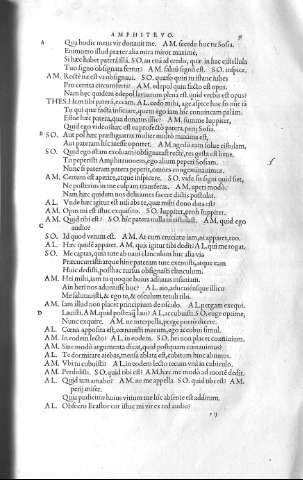 AMPHITRVO.
A Qua hodie meus vir donauit me. AM. secede huc tu Sosia.
Enimuero illud præter alia mira miror maxime,
Si hæc habet pateram illã. SO. an etiã id credis, quæ in hac cistellula
Tuo signo obsignata fertur? AM. saluũ signũ est. SO. inspice.
AM. Recte ita est vt obsignaui. SO. quæso quin tu istanc iubes
Pro cerrita circumferri? AM. edepol quin facto est opus.
Nam hæc quidem edepol laruarum plena est. quid verbis opus?
THES. Em tibi pateram, eccam. AL. cedo mihi, age aspice huc sis nunc iã
Tu qui quæ facta inficiare, quem ego iam hic conuincam palam.
Estne hæc patera, qua donatu's illic? AM. summe Iuppiter,
Quid ego video? hæc est ea profecto patera, perij Sosia.
B SO. Aut pol hæc præstigiatrix mulier multo maxima est,
Aut pateram hîc inesse oportet. AM. agedũ eam solue cistulam.
SO. Quid ego istam exoluam? obsignata est recte, res gesta est bene.
Tu peperisti Amphitruonem, ego alium peperi Sosiam.
Nunc si patera pateram peperit, omnes congeminauimus.
AM. Certum est aperire, atque inspicere. SO. vide sis signi quid siet,
Ne posterius in me culpam transferas. AM. aperi modò.
Nam hæc quidem nos delirantes facere dictis postulat.
AL. Vnde hæc igitur est nisi abs te, quæ mihi dono data est?
AM. Opus mi est istuc exquisito. SO. Iuppiter, proh Iuppiter.
C AM. Quid tibi est? SO. hîc patera nulla in cistula est. AM. quid ego
audio?
SO. Id quod verum est. AM. At cum cruciatu iam, ni apparet, tuo.
AL. Hæc quidẽ apparet. AM. quis igitur tibi dedit? AL. qui me rogat.
SO. Me captas, quia tute ab naui clanculum huc alia via
Præcucurristi: atque hinc pateram tute exemisti, atque eam
Huic dedisti, post hac rursus obsignasti clanculum.
AM. Hei mihi, iam tu quoque huius adiuuas insaniam.
Ain heri nos aduenisse huc? AL. aio, adueniensque illico
Me salutauisti, & ego te, & osculum tetuli tibi.
AM. Iam illud non placet principium de osculo. AL. pergam exequi.
D Lauisti. AM. quid postquã laui? AL. accubuisti. SO. euge optime,
Nunc exquire. AM. ne interpella, perge porrò dicere.
AL. Cœna apposita est, cœnauisti mecum, ego accubui simul.
AM. In eodem lecto? AL. in eodem. SO. hei non placet conuiuium.
AM. Sine modò argumenta dicat, quid postquam cœnauimus?
AL. Te dormitare aiebas, mensa ablata est, cubitum hinc abimus.
AM. Vbi tu cubuisti? AL. in eodem lecto tecum vnà in cubiculo.
AM. Perdidisti. SO. quid tibi est? AM. hæc me modò ad mortẽ dedit.
AL. Quid iam amabo? AM. ne me appella. SO. quid tibi est? AM.
perij miser.
Quia pudicitiæ huius vitium me hîc absente est additum.
AL. Obsecro Ecastor cur istuc mi vir ex ted audio?